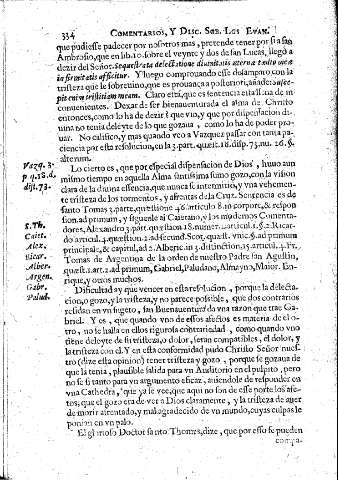 334 COMENTARIOS, Y DISC. SOB. LOS EVAN.
que pudiesse padecer por nosotros mas, pretende tener por si a san
Ambrosio, que en lib. 10. sobre el veynte y dos de san Lucas, llegó a
dezir del Señor. Sequestrata delectatione diuinitatis æterna tædio meæ
infirmitatis afficitur. Y luego comprouando esse desamparo, con la
tristeza que le sobreuino, que es prouança a posteriori, añade: suscepit enim tristitiam meam.
Claro está, que es sentencia essa llena de inconuenientes.
Dexar de ser bienauenturada el alma de Christo
entonces, como lo ha de dezir è que vio, y que por dispensacion diuina
no tenia deleyte de lo que gozaua, como lo ha de poder prouar.
No califico, y mas quando veo a Vazquez passar con tanta paciencia
por esta resolucion, en la 3. part. quæst. 18. disp. 73. nu. 26. §.
alterum.
Vazq. 3.
p q. 18. d.
disp. 73.
Lo cierto es, que por especial dispensacion de Dios, huuo aun
mismo tiempo en aquella Alma santissima sumo gozo, con la vision
clara de la diuina essencia, que nunca se intermitio, y vna vehemente
tristeza de los tormentos, y afrentas de la Cruz. Sentencia es de
santo Tomas 3. parte, quæstione 46. articulo 8. in corpore, & responsione
ad primum, y siguenle aì Caietano, y los modernos Comentadores,
S. Th.
Caiet.
Alex.
Ricar.
Alber.
Argen.
Gabr.
Palud.
Tomas de Argentina de la orden de nuestro Padre san Agustin,
Gabriel, Paludano, Almayno, Maior, Enrique,
y otros muchos.
Dificultad ay que vencer en esta resolucion, porque la delectacion,
o gozo, y la tristeza, y no parece possible, que dos contrarios
residan en vn sugeto, san Buenauentura dà vna razon que trae Gabriel.
Y es, que quando vno de essos afectos es materia de el otro,
no se halla en ellos rigurosa contrariedad, como quando vno
tiene deleyte de su tristeza, o dolor, seran compatibles, el dolor, y
la tristeza con el. Y en esta conformidad pudo Christo Señor nuestro
(dize esta opinion) tener tristeza y gozo, porque se gozaua de
que la tenia, plausible salida para vn Auditorio en el pulpito, pero
no se si tanto para vn argumento eficaz, auiendole de responder en
vna Cathedra, que ya se vee, que aqui no son de esse porte los afectos,
que el gozo era de ver a Dios claramente, y la tristeza de auer
de morir afrentado, y malagradecido de vn mundo, cuyas culpas le
ponian en vn palo.
El glorioso Doctor santo Thomas, dize, que por esso se pueden
compa-